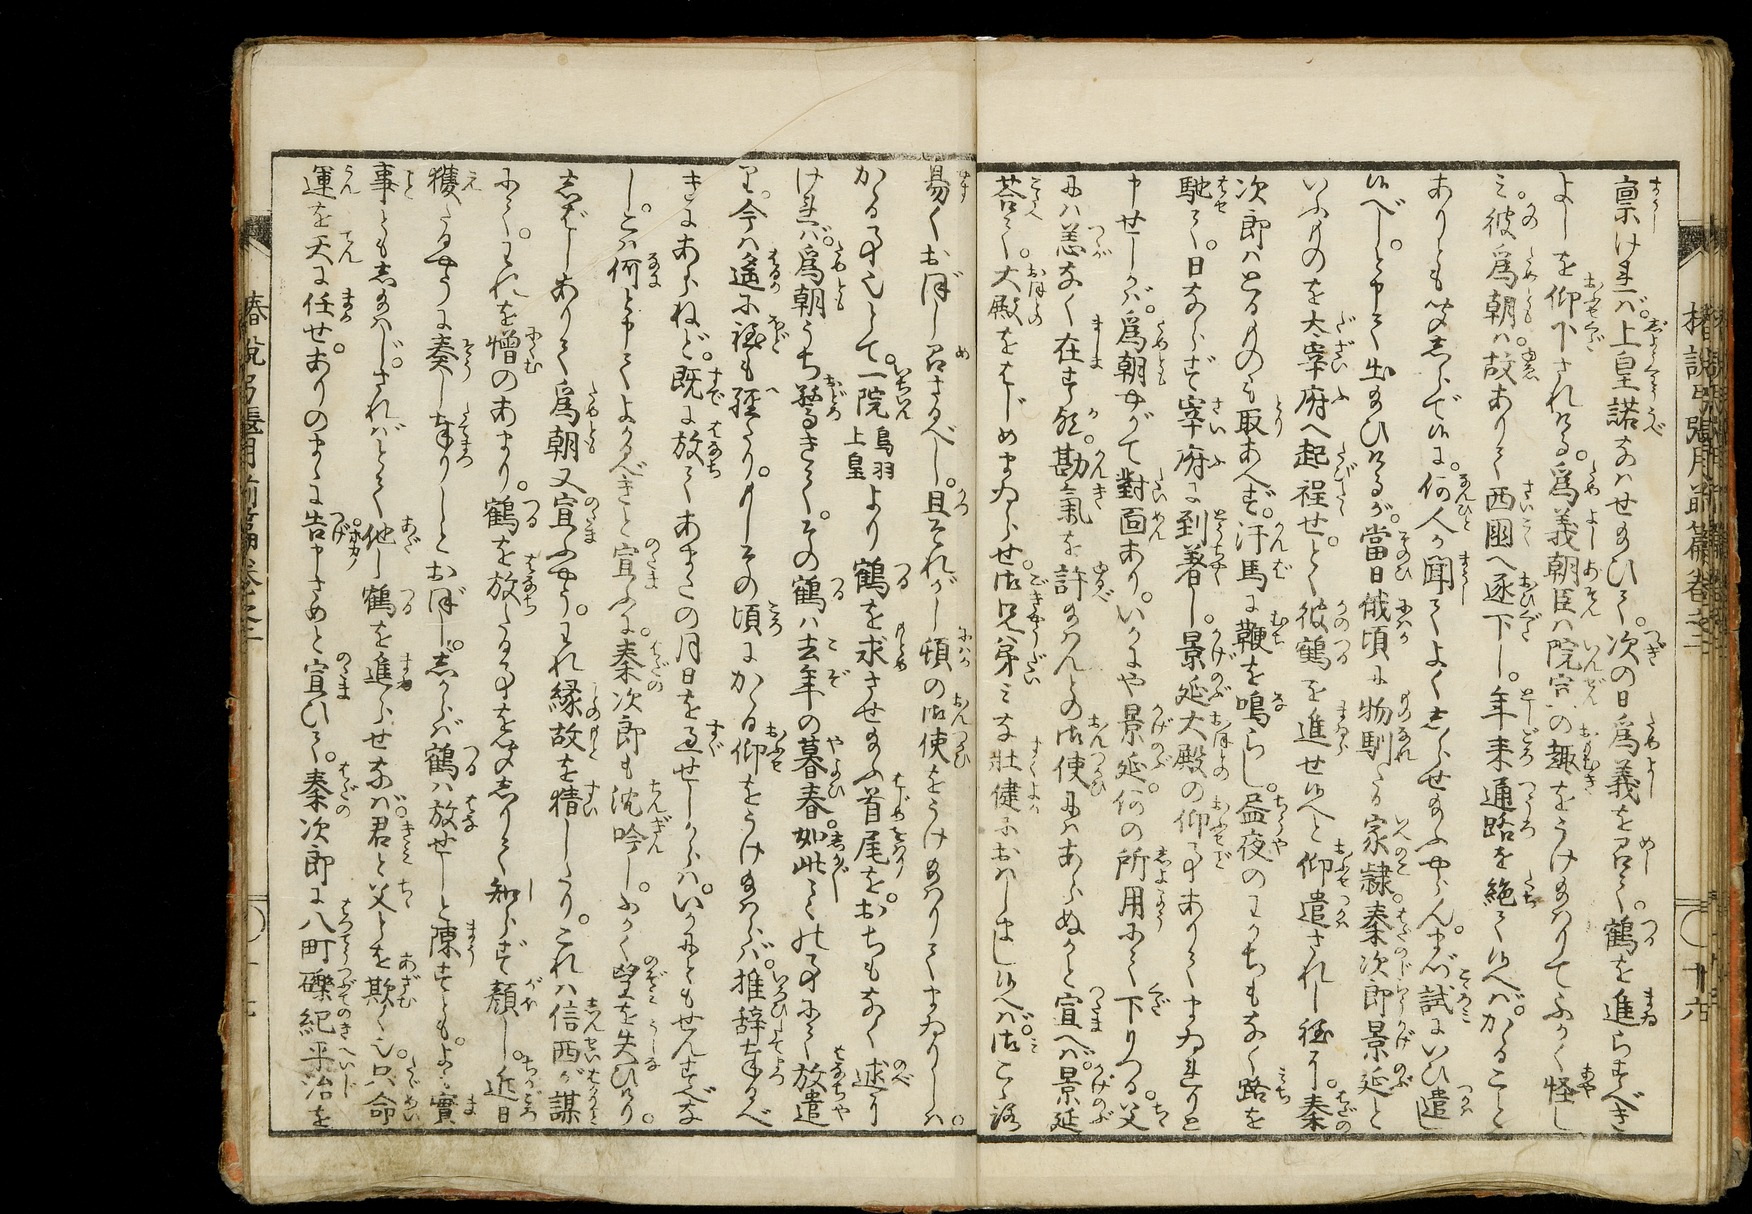 稟ければ。上皇諾なはせ給ひて。次の日為義を召て。鶴を進らすべき
よしを仰下されける。為義朝臣は院宣の趣をうけ給はりてふかく怪し
み。彼為朝は故ありて西国へ逐下し。年来通路を絶て候へば。かゝること
ありとも絶てしらで候に。何人か聞てよくしらせ給ふやらん。まづ試にいひ遣し
候べし。とまうして出給ひけるが。当日俄頃に物馴たる家隷。秦次郎景延と
いふものを太宰府へ起程せ。とく彼鶴を進せ候へと仰遣されし程に。秦
次郎はとるものも取あへず。汗馬に鞭を鳴らし。昼夜のわかちもなく路を
馳て。日ならず宰府に到着し。景延大殿の仰事ありてまゐれりと
申せしかば。為朝やがて対面あり。いかにや景延。何の所用にて下りつる。父
には恙なく在すか。勘気を許給はんとの御使にはあらぬかと宣へば。景延
答て。大殿をはじめまゐらせ。御兄弟みな壮健におはしまし候へば。御こゝろ
易くおぼし召さるべし。且それがし頓の御使をうけ給はりてまゐりしは。
かゝる事也とて。一院鳥羽上皇より鶴を求させ給ふ首尾を。おちもなく述
ければ。為朝うち驚きて。その鶴は去年の暮春。如此々々の事にて放遣
り。今は遙に程も経たり。もしその頃にかゝる仰をうけ給はらば。推辞奉るべ
きにあらねど。既に放てあまたの月日を過せしからは。いかにともせんすべな
し。こは何とまうしてよかるべきと宣ふに。秦次郎も沈吟し。ふかく望を失ひけり。
しばしありて為朝又宣ふやう。われ縁故を猜したり。これは信西が謀
にて。われを憎のあまり。鶴を放したる事をしりて知らず顔し。近日
獲たるやうに奏し奉りしとおぼし。しからば鶴は放せしと陳ずとも。よも実
事ともし給はじ。さればとて他し鶴を進らせなば。君と父とを欺く也。只命
運を天に任せ。ありのまゝに告まうさめと宣ひて。秦次郎に八町礫紀平治を
椿説弓張月前篇巻之二
十六
椿説弓張月前篇巻之二
十七